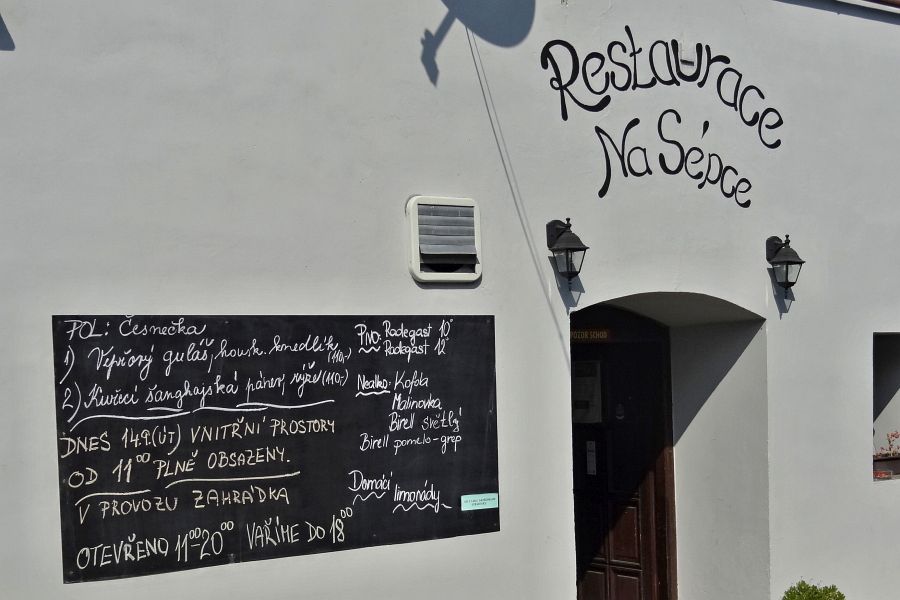 Restaurace
Na Sépce
POZOR SCHOD
POL: Česnečka
1) Vepřový guláš, housk. knedlík (110,-)
2) Kuřecí šanghajská pánev, rýže (110,-)
DNES 14.9. (ÚT) VNITŘNÍ PROSTORY
OD 11 00 PLNĚ OBSAZENY.
V PROVOZU ZAHRÁDKA
OTEVŘENO 11 00 - 20 00 VAŘÍME DO 18 00
PIVO: Radegast 10°
Radegast 12°
Nealko: Kofola
Malinovka
Birell světlý
Birell pomelo-grep
Domácí
limonády